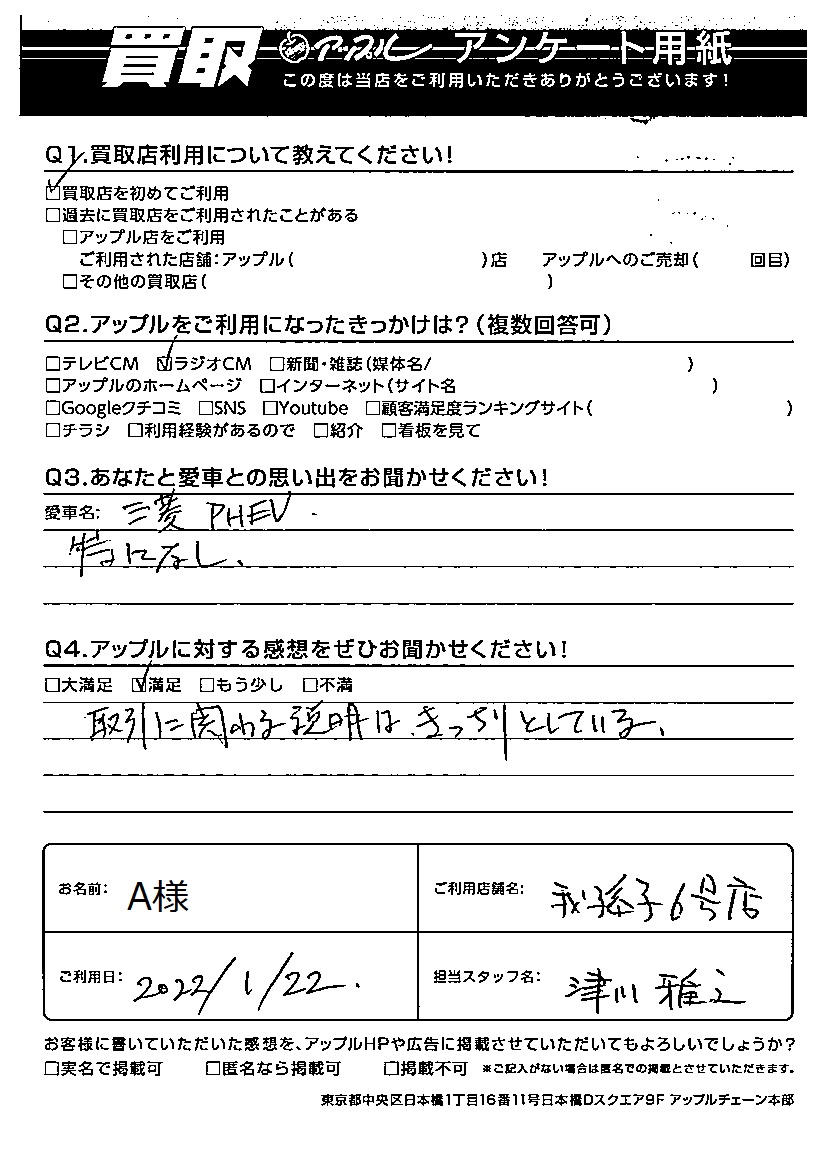 買取 アップル アンケート用紙
この度は当店をご利用いただきありがとうございます!
Q1.買取店利用について教えてください!
☑買取店を初めてご利用
□過去に買取店をご利用されたことがある
□アップル店をご利用
ご利用された店舗:アップル( )店 アップルへのご売却( 回目)
□その他の買取店( )
Q2.アップルをご利用になったきっかけは?(複数回答可)
□テレビCM ☑ラジオCM □新聞・雑誌(媒体名/ )
□アップルのホームページ □インターネット(サイト名 )
□Googleクチコミ □SNS □Youtube □顧客満足度ランキングサイト( )
□チラシ □利用経験があるので □紹介 □看板を見て
Q3.あなたと愛車との思い出をお聞かせください!
愛車名: 三菱 PHEV
特になし、
Q4.アップルに対する感想をぜひお聞かせください!
□大満足 ☑満足 □もう少し □不満
取引に関わる説明は、きっちりとしている、
お名前: A様
ご利用店舗名: 我孫子6号店
ご利用日: 2022/1/22.
担当スタッフ名: 津川 雅之
お客様に書いていただいた感想を、アップルHPや広告に掲載させていただいてもよろしいでしょうか?
□実名で掲載可 □匿名なら掲載可 □掲載不可 ※ご記入がない場合は匿名での掲載とさせていただきます。
東京都中央区日本橋1丁目16番11号日本橋Dスクエア9F アップルチェーン本部